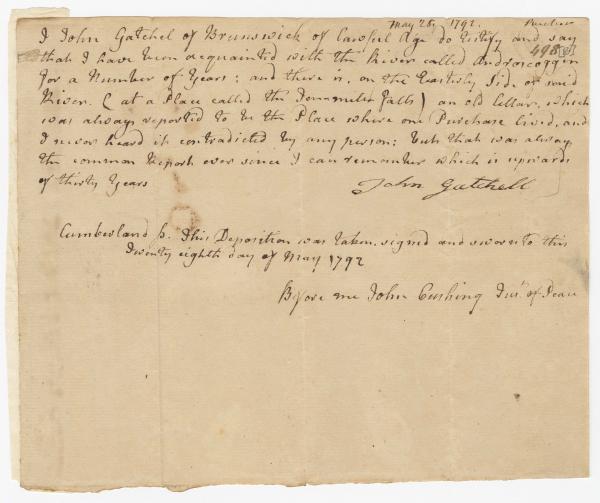 May 28, 1792.
I John Gatchel of Brunswick of Lawful Age do testify and say
that I have been acquainted with the River called Androscoggin
for a Number of Years; and there is, on the Easterly Side of said
River. (at a Place called the Ten-mile Falls) an old Cellar, which
was always reported to be the Place where one Purchase lived, and
I never heard it contradicted by any person; but that was always
the common Report ever since I can remember which is upwards
of thirty Years
John Gatchell
Cumberland ss. This Deposition was taken, signed and sworn to this
Twenty eighth day of May 1792
Before me John Cushing Jus. of Peace